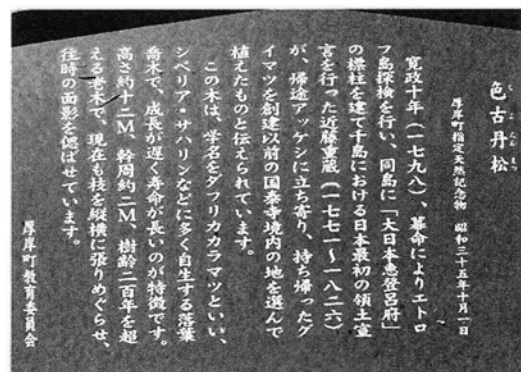 色古丹松
しこたんまつ
厚岸町指定天然記念物　昭和三十五年十月一日
寛政十年（一七九八）、幕命によりエトロ
フ島探検を行い、同島に「大日本恵登呂府」
の標柱を建て千島における日本最初の領土宣
言を行った近藤重蔵（一七七一～一八二六）
が、帰途アッケシに立ち寄り、持ち帰ったグ
イマツを創建以前の国泰寺境内の地を選んで
植えたものと伝えられています。
この木は、学名をダフリカカラマツといい、
シベリア・サハリンなどに多く自生する落葉
喬木で、成長が遅く寿命が長いのが特徴です。
高さ約十二M、幹周約二M、樹齢二百年を超
える老木で、現在も枝を縦横に張りめぐらせ、
往時の面影を偲ばせています。
厚岸町教育委員会